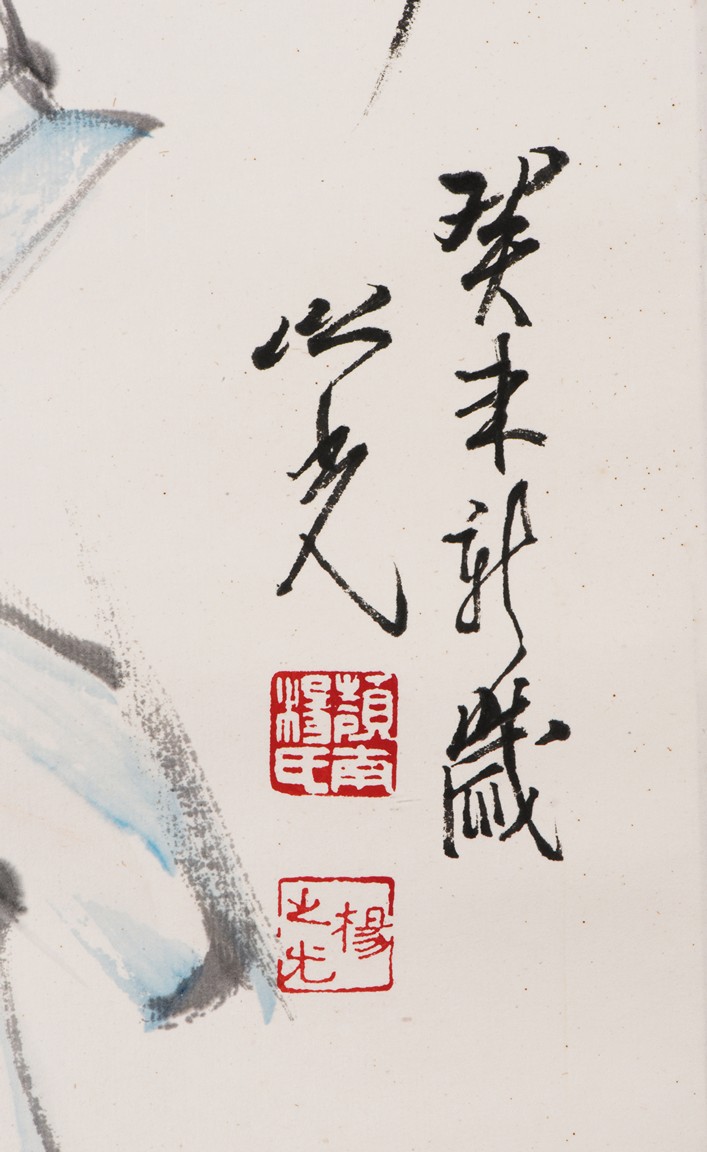 癸未新歲
之光
嶺南
楊氏
楊
之光